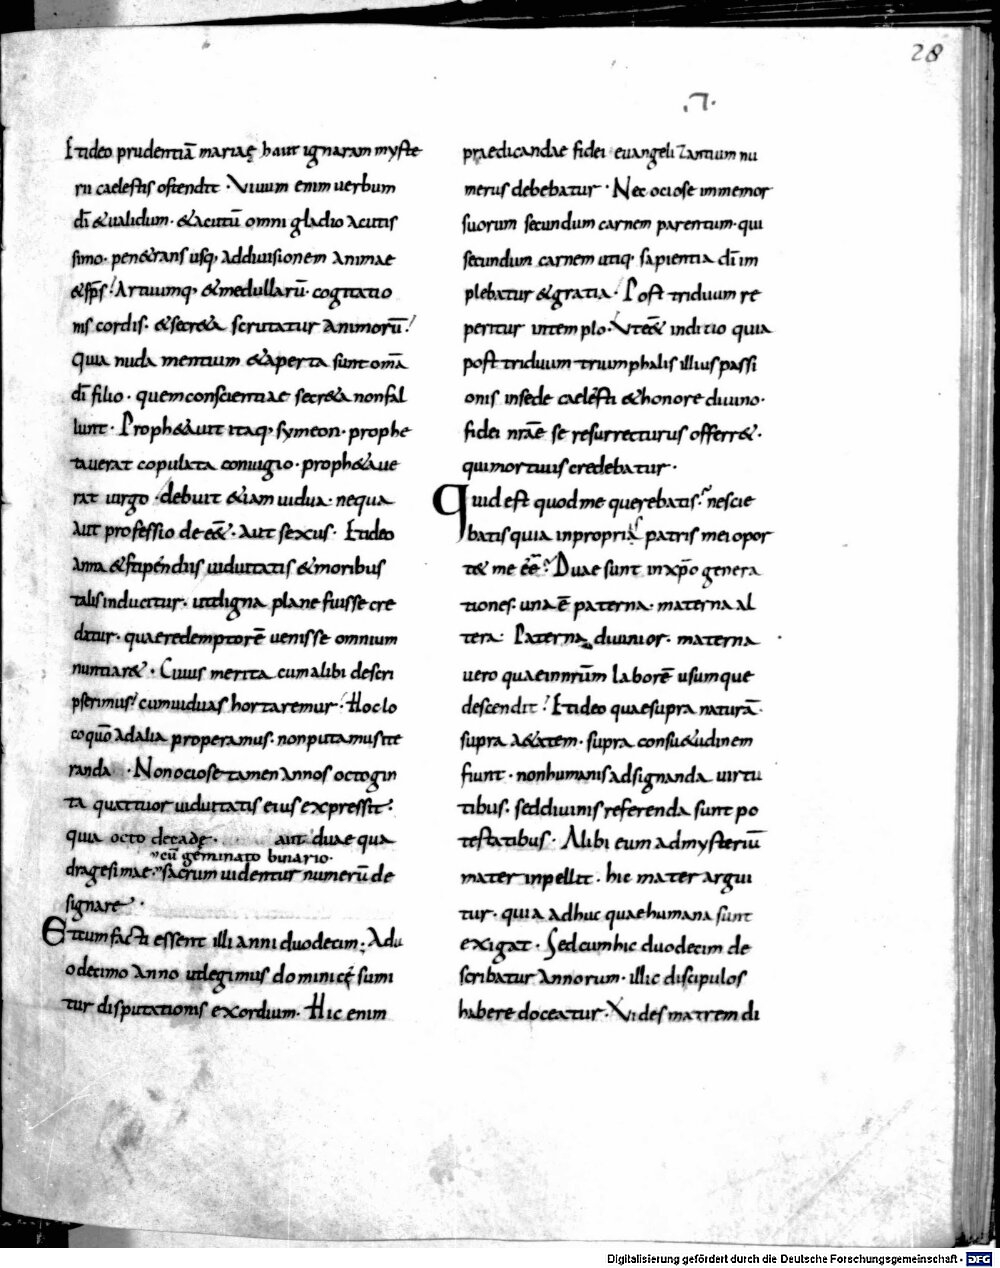 28
Et ideo prudentiā mariae haut ignaram myste
rii caelestis ostendit · Vivum enim verbum
dī & validum · & acutū omni gladio acutis
simo · pen&rans usq, ad divisionem animae
& sp̄s! Artuumq, & medullarū · cogitatio
nis cordis · & secr&a scrutatur animorū!
quia nuda mentium & aperta sunt om̄a
dī filio · quem conscientiae secr&a non fal
lunt · Proph&avit itaq, symeon · prophe
taverat copulata coniugio · proph&ave
rat virgo · debuit &iam vidua · nequa
aut professio dee&̄ · aut sexus · Et ideo
anna & stipendiis viduitatis & moribus
talis inducitur · ut digna plane fuisse cre
datur · quae redemptorē venisse omnium
nuntiar& · Cuius merita cum alibi descri
pserimus! cum viduas hortaremur · Hoc lo
co quō ad alia properamus · non putamus ite
randa · Non ociose tamen annos octogin
ta quattuor viduitatis eius expressit ·
quia octo decade · aut duae qua
cū geminato binario ·
dragesimae · sacrum videntur numerū de
signare ·
Et cum facti essent illi anni duodecim · A du
odecimo anno ut legimus dominicę sumi
tur disputationis exordium · Hic enim
praedicandae fidei euangelizantium nu
merus debebatur · Nec ociose immemor
suorum secundum carnem parentum · qui
secundum carnem utiq, sapientia dī im
plebatur & gratia · Post triduum re
peritur in templo · Ut e&̄ inditio quia
post triduum triumphalis illius passi
onis in sede caelesti & honore divino ·
fidei nr̄ae se resurrecturus offerr& ·
qui mortuus credebatur ·
Quid est quod me querebatis · nescie
batis quia in propria patris mei opor
t& me ēē · Duae sunt in xp̄o genera
tiones · una ē paterna · materna al
tera · Paterna divinior · materna
vero quae in nr̄um laborē usumque
descendit! Et ideo quae supra naturā ·
supra a&atem · supra consu&udinem
fiunt · non humanis adsignanda virtu
tibus · sed divinis referenda sunt po
testatibus · Alibi eum ad mysteriū
mater inpellit · hic mater argui
tur · quia adhuc quae humana sunt
exigat · Sed cum hic duodecim de
scribatur annorum · illic discipulos
habere doceatur · Vides matrem di
Digitalisierung gefördert durch die Deutsche Forschungsgemeinschaft - DFG